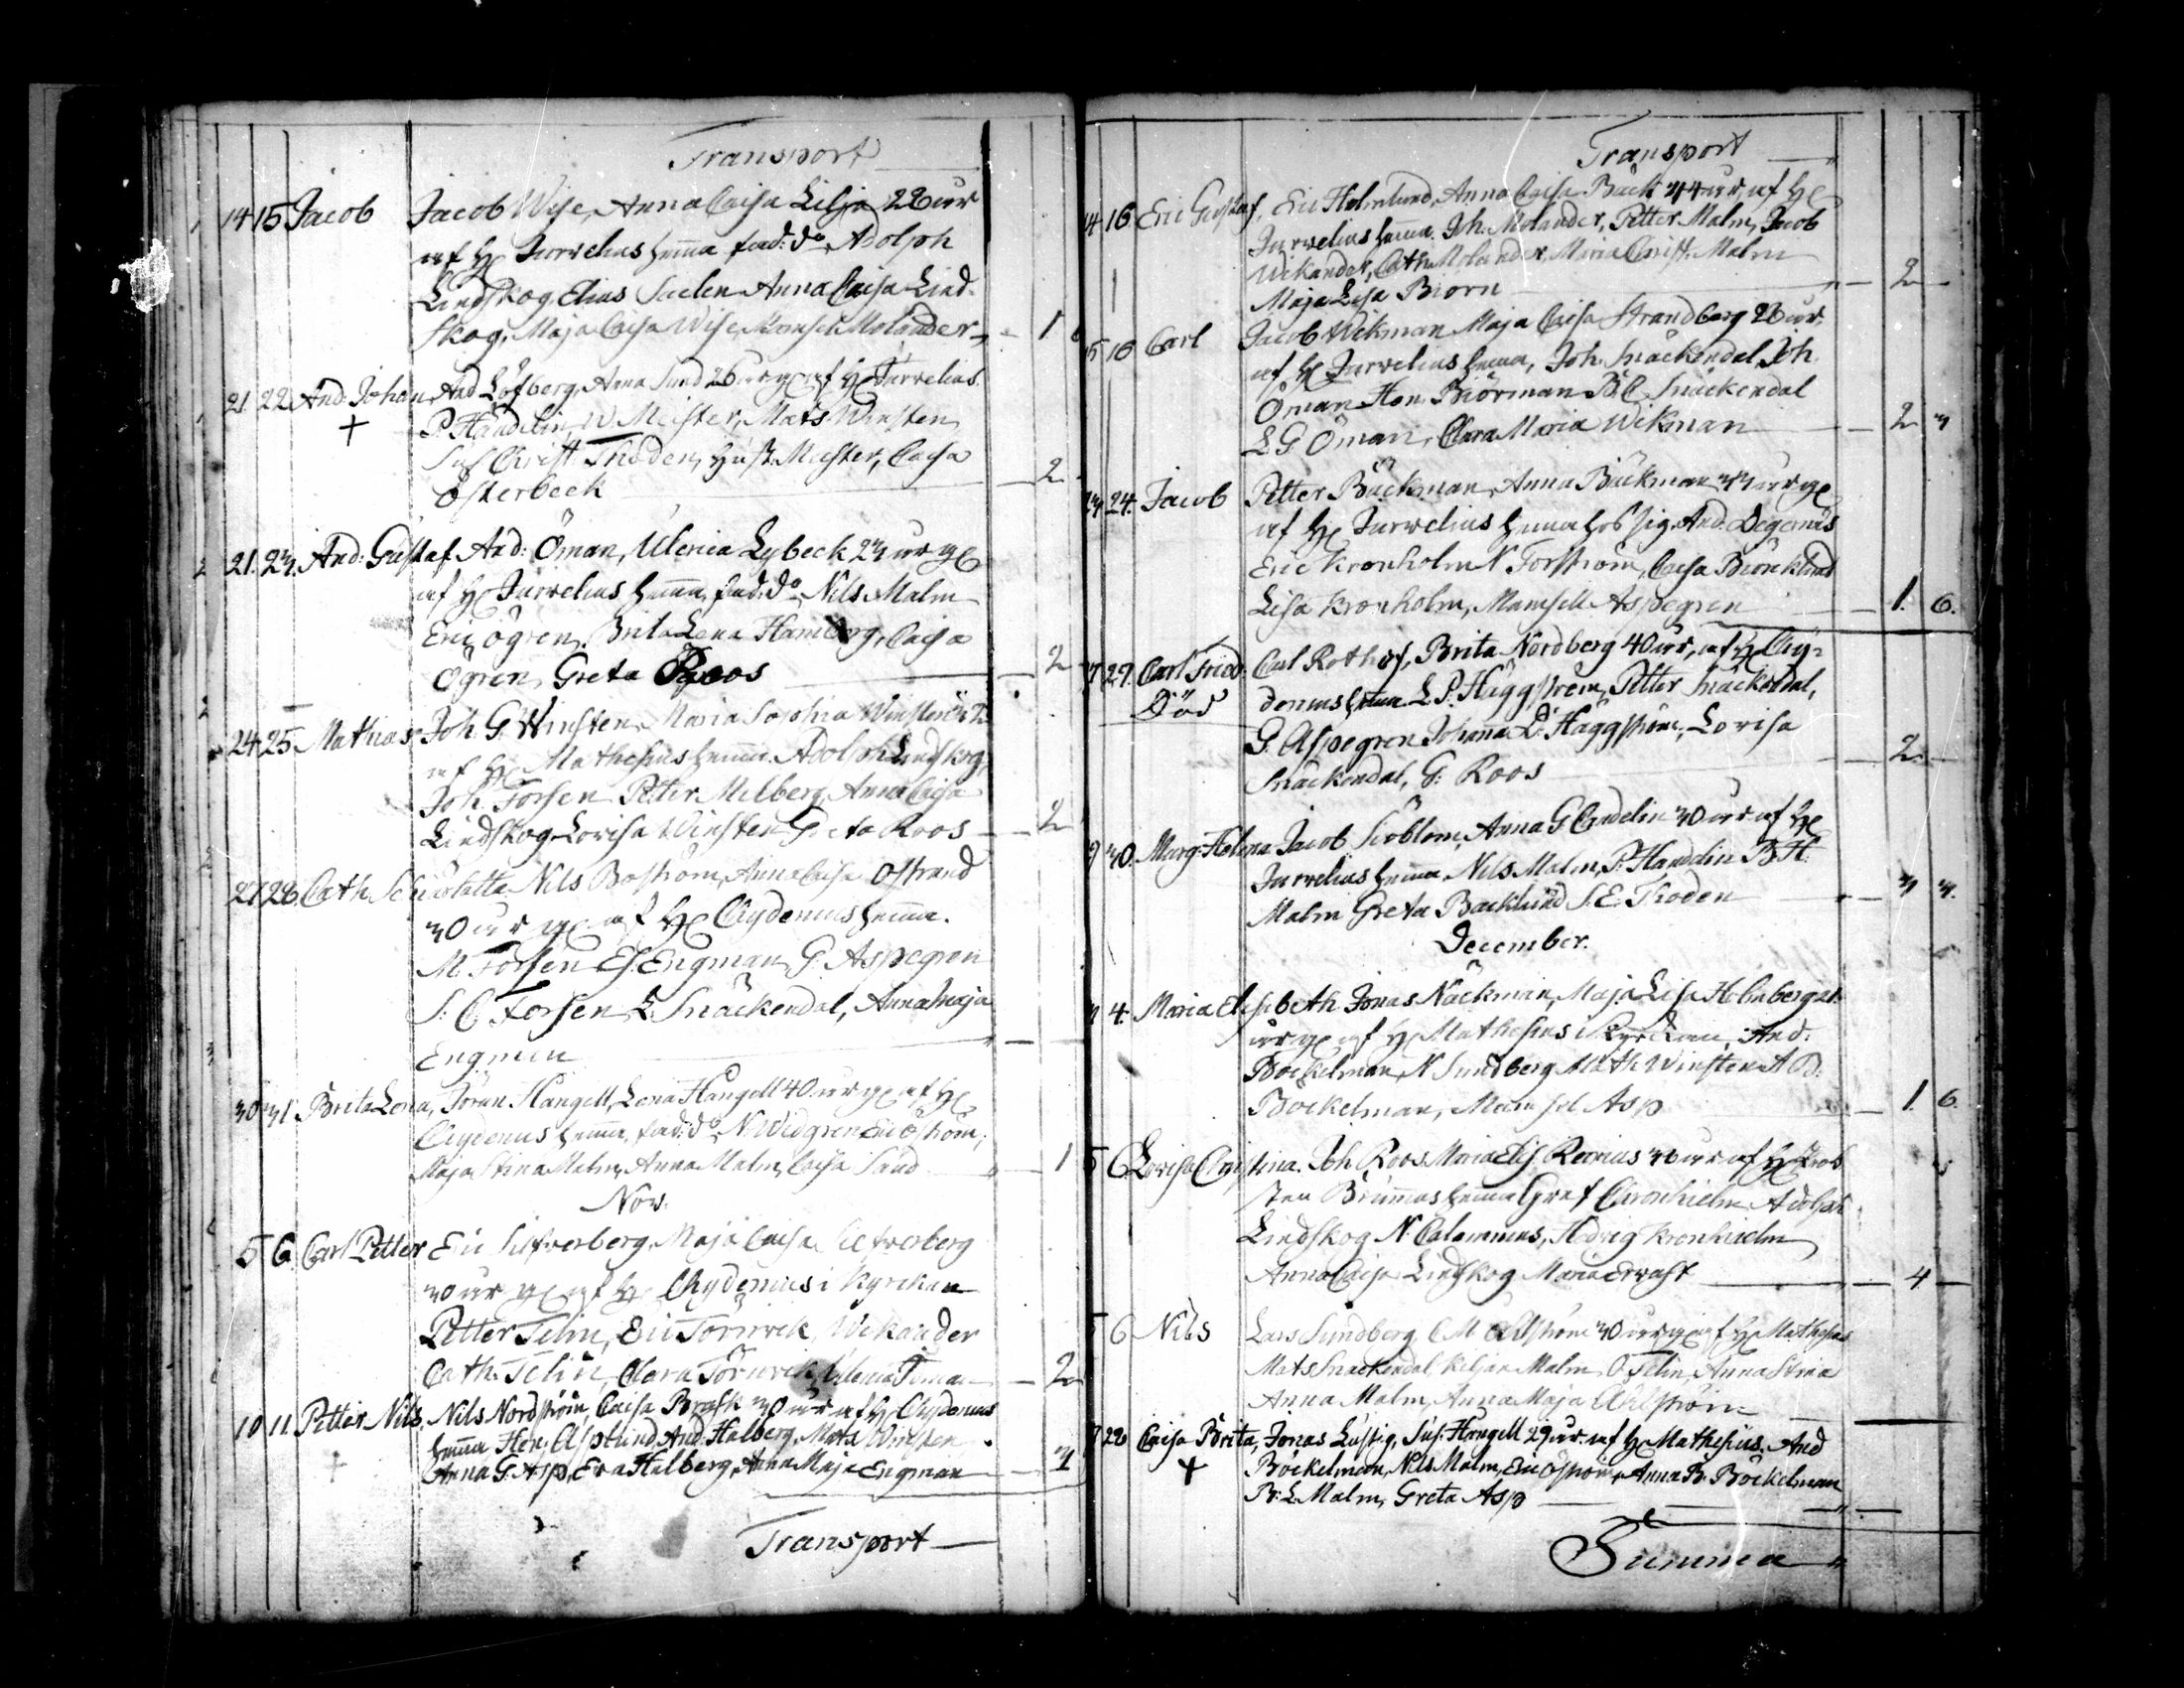 Transport
14 15 Jacob Jacob Wise, Anna Caisa Lilja 22 år
af H Jurvelius hemma fad: do Adolph
Lindskog, Elias Salen Anna Caisa Lind-
skog, Maja Caisa Wise, Mamsell Molander 1
21. 22 And: Johan And Löfberg, Anna Sund 26 år af H Jurvelius.
+ P. Handelin, W Mester, Mats Winsten
Christ: Thoden, Hust. Mester, Caisa
Österbeck 2
21. 23. And: Gustaf And: Öman, Ulrica Lybeck 23 år
af H Jurvelius hemma, fad: do Nils Malm
Eric Ögren, Brita Lena Hamberg, Caisa
Ögren, Greta Roos 2
24 25 Mathias Joh. G. Winsten, Maria Sophia Winsten
af H Mathesius hemma. Adolph Lindskog,
Joh. Forsen Petter Melberg, Anna Caisa
Lindskog Lovisa Winsten Greta Roos 2
27 28. Cath. Nils Boström, Anna Caisa Ostrand
30 år af H Chydenius hemma.
M. Forsen Engman G. Aspegren
S. C. Forsen, L. Snäckendal, Anna Maja
Engman
30 31 Brita Lena, Jöran Hangell, Lena Hangell 40 år af H
Chydenius hemma, fad: do N Widgren Eric Öström,
Maja Stina Malm, Anna Malm, Caisa Sund 1
Nov.
5 6 Carl Petter Eric Silfverberg, Maja Caisa Silfverberg
30 år af H Chydenius i Kyrckan
Petter Telin, Eric Törnvik, Wikander
Cath. Telin, Clara Törnvik, Ulrica 2
10 11. Petter Nils. Nils Nordström, Caisa Brask 30 år af H Chydenius
hemma Hen. Asplund, And: Halberg, Mats Winsten
Anna G. Asp, Eva Halberg, Anna Maja Engman
Transport
Transport
14 16 Eric Gustaf, Eric Holmlund, Anna Caisa Bäck 44 år, af H
Jurvelius hemma. Joh. Molander, Petter Malm, Jacob
Wikander, Cath Molander, Maria Christ. Malm
Maja Lisa Biorn 2
15 16 Carl Jacob Wikman Maja Caisa Strandberg 26 år,
af H Jurvelius hemma, Joh. Snäckendal, Joh.
Öman Hen. Biörman B C Snäckendal
L G Öman, Clara Maria Wikman 2 3
23 24. Jacob Petter Bäckman, Anna Bäckman 33 år
af H Jurvelius hemma hos sig. And: Degerius
Eric Kronholm N Forström, Caisa Biörcklund
Lisa Kronholm, Mamsell Aspegren 1. 6.
27. Carl Fried: Carl Rothof, Brita Nordberg 40 år, af H Chy-
Död denius hemma L. P. Häggström, Petter Snäckendal,
G. Aspegren Johanna D. Häggström, Lovisa
Snäckendal, G: Roos 2
30. Marg: Helena Jacob Siöblom, Anna G Chadelin 30 år af H
Jurvelius hemma Nils Malm, P. Handelin B H.
Malm Greta Backlund S. E. Thoden 3 3.
December.
4. Maria Elisabeth Jonas Näckman, Maja Lisa Holmberg 21.
år af H Mathesius i Kyrckan, And:
Böckelman, N Sundberg Math Winsten A B.
Böckelman, Mamsel Asp 1. 6.
5 6 Lovisa Christina. Joh Roos Maria Elis Reinius 30 år af H Prob
sten Brunnius hemma Graf Cronhielm Adolph
Lindskog N. Calamnius, Hedvig Kronhielm
Anna Caisa Lindskog Maria Ervast 4
5 6 Nils Lars Sundberg C M Ahlström 30 år af H Mathesius
Mats Snäckendal, Malm Telin, Anna Stina
Anna Malm, Anna Maja Ahlström
28 Caisa Brita, Jonas Lustig, Sus: Hangell 29 år af H Mathesius. And
+ Böckelman, Nils Malm, Eric Öström, Anna B. Böckelman
B: L. Malm, Greta Asp
Summa